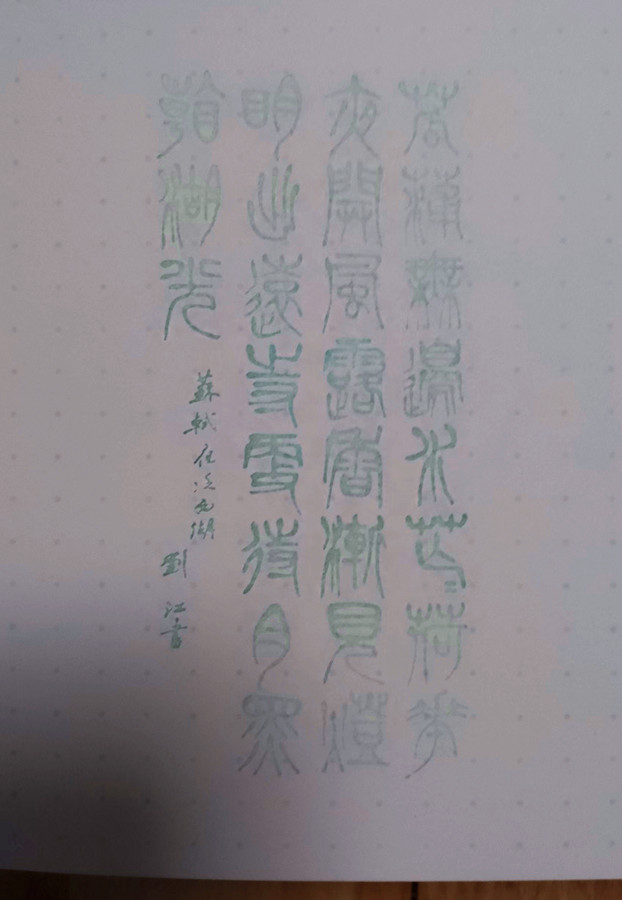 菰蒲無邊水茫〻荷華
夜開風露香漸見燈
明出遠寺更待月黑
看湖光
蘇軾夜泛西湖
劉江書